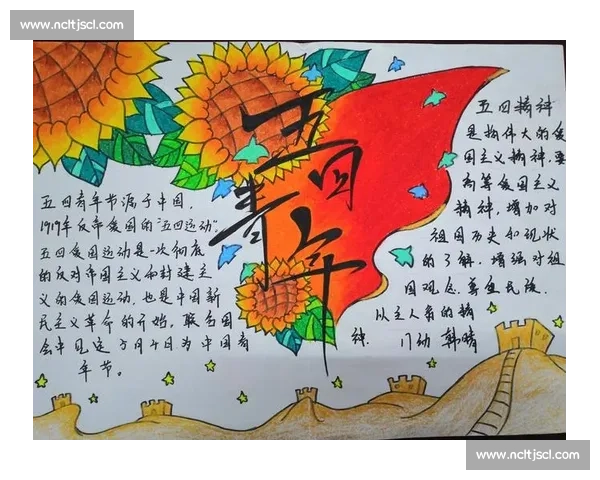 www.ncltjscl.com
五四青年
五四青年节源于中国,
1919年反帝爱国的“五四运动”.
五四爱国运动是一次彻底
的反对帝国主义和封建主
义的爱国运动,也是中国新
民主义革命的开始,
年节。
五四精神
是指伟大的爱
国主义精神,要
爱国主义
精神,增加对
祖国历史和现状
的了解,增强对祖
国观念,
以主人翁的精
神.
www.ncltjscl.com